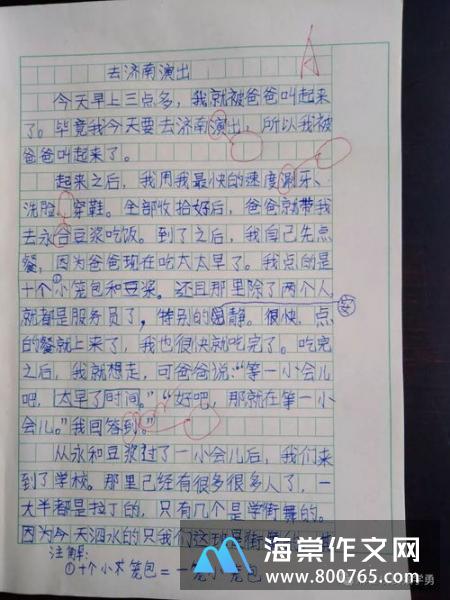 去济南演出
今天早上三点多，我就被爸爸叫起来
了。毕竟我今天要去济南演出，所以我被
爸爸叫起来了。
起来之后，我用我最快的速度刷牙、
洗脸、穿鞋。全部收拾好后，爸爸就带我
去永合豆浆吃饭。到了之后，我自己先点
餐，因为爸爸现在吃太早了。我点的是
十个①小笼包和豆浆。还且那里除了两个人
就都是服务员了，特别的静。很快，点
的餐就上来了，我也很快就吃完了。吃完
之后，我就想走，可爸爸说：“等一小会儿
吧，太早了时间。”“好吧，那就在等一小
会儿。”我回答到。”
从永和豆浆过了一小会儿后，我们来
到了学校。那里已经有很多很多人了，一
大半都是拉丁的，只有几个是学街舞的。
因为今天泗水的只我们这
注解：
①十个小笼包=一笼小笼包
安
海棠作文网
www.800765.com